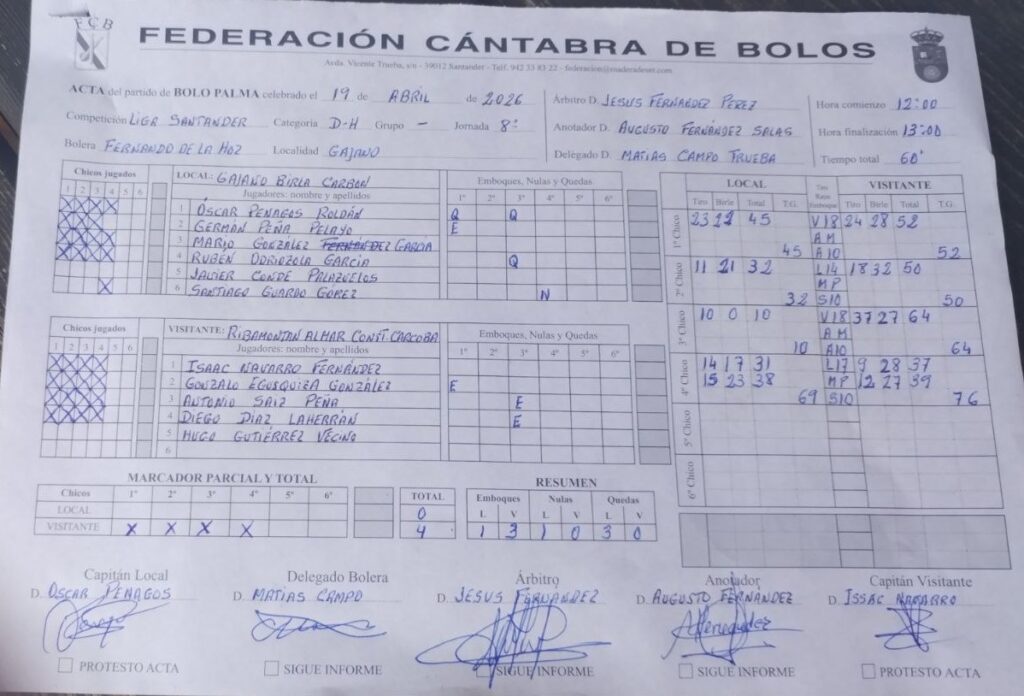 FCB
FEDERACIÓN CÁNTABRA DE BOLOS
Avda. Vicente Trueba, s/n - 39012 Santander - Telf. 942 33 83 22 - federacion@maderadeser.com
ACTA del partido de BOLO PALMA celebrado el 19 de ABRIL de 2026
Competición LIGA SANTANDER Categoria D-H Grupo - Jornada 8ª
Bolera FERNANDO DE LA HOZ Localidad GAJANO
Árbitro D. JESUS FERNANDEZ PEREZ
Anotador D. AUGUSTO FERNÁNDEZ SALAS
Delegado D. MATIAS CAMPO TRUEBA
Hora comienzo 12:00
Hora finalización 13:00
Tiempo total 60'
Chicos jugados
1 2 3 4 5 6
LOCAL: GAJANO BIRLA CARBON
Jugadores: nombre y apellidos
Emboques, Nulas y Quedas
1º 2º 3º 4º 5º 6º
1 ÓSCAR PENAGOS ROLDÁN Q Q
2 GERMÁN PEÑA PELAYO E
3 MARIO GONZÁLEZ FERNANDEZ GARCIA
4 RUBÉN ODRIOZOLA GARCIA Q
5 JAVIER CONDE PALAZUELOS
6 SANTIAGO GUARDO GOREZ N
Chicos jugados
1 2 3 4 5 6
VISITANTE: RIBAMONTAN ALMAR CONST. CARCOBA
Jugadores: nombre y apellidos
Emboques, Nulas y Quedas
1º 2º 3º 4º 5º 6º
1 ISAAC NAVARRO FERNÁNDEZ
2 GONZALO EGUSQUIZA GONZÁLEZ E
3 ANTONIO SAIZ PEÑA E
4 DIEGO DIAZ LAHERRÁN E
5 HUGO GUTIÉRREZ VECINO
6
LOCAL VISITANTE
Tiro Birle Total T.G. Tiro Raya Emboque Tiro Birle Total T.G.
1º Chico 23 22 45 V18 24 28 52
AM
45 A10 52
2º Chico 11 21 32 L14 18 32 50
MP
32 S10 50
3º Chico 10 0 10 V18 37 27 64
AM
10 A10 64
4º Chico 14 17 31 L17 9 28 37
15 23 38 MP 12 27 39
69 S10 76
5º Chico
6º Chico
MARCADOR PARCIAL Y TOTAL
Chicos 1º 2º 3º 4º 5º 6º TOTAL
LOCAL 0
VISITANTE X X X X 4
RESUMEN
Emboques Nulas Quedas
L V L V L V
1 3 1 0 3 0
Capitán Local
D. OSCAR PENAGOS
PROTESTO ACTA
Delegado Bolera
D. MATIAS CAMPO
SIGUE INFORME
Árbitro
D. JESUS FERNANDEZ
SIGUE INFORME
Anotador
D. AUGUSTO FERNÁNDEZ
SIGUE INFORME
Capitán Visitante
D. ISSAC NAVARRO
PROTESTO ACTA